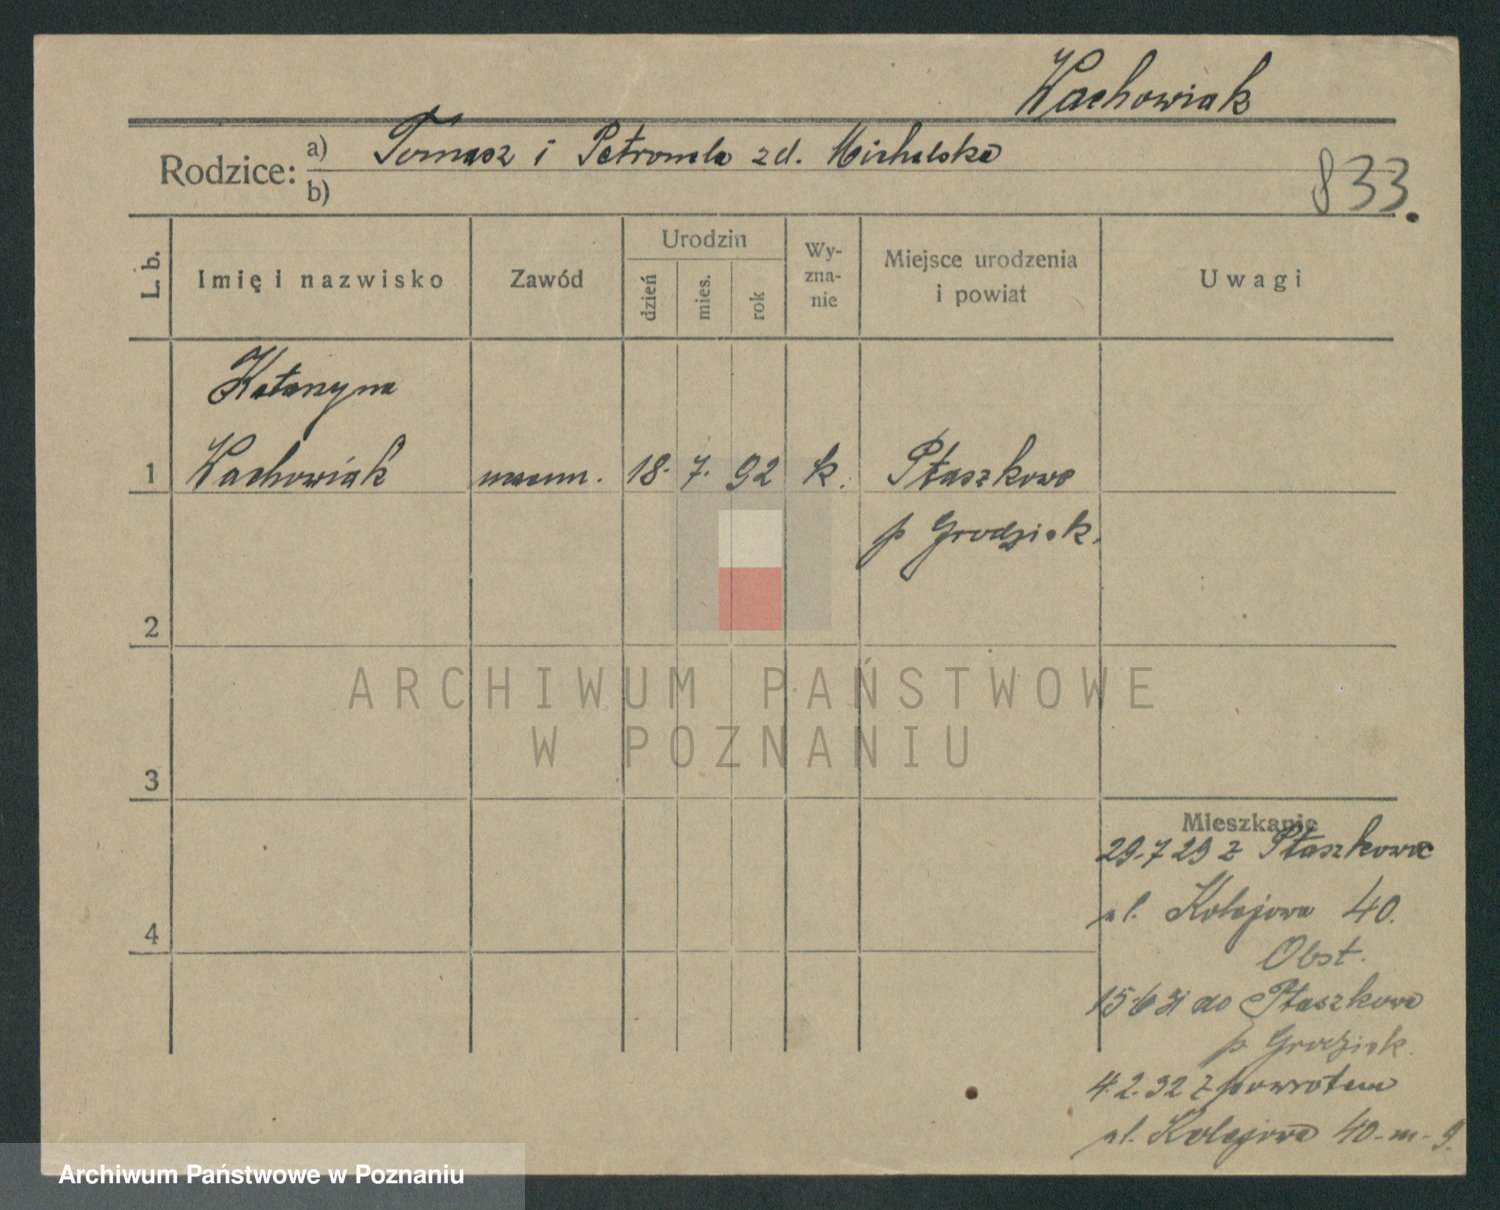 Wachowiak
Rodzice: a) Tomasz i Petronela zd. Michalska
b)
833.
L. b.
Imię i nazwisko
Zawód
Urodzin
dzień
mies.
rok
Wy-
zna-
nie
Miejsce urodzenia
i powiat
Uwagi
Katarzyna
1 Wachowiak 18. 7. 92 k. Ptaszkowo
p Grodzisk.
2
3
4
Mieszkanie
29.7 29 z Ptaszkowa
ul. Kolejowa 40.
Obst.
15 6 31 do Ptaszkowa
p Grodzisk.
4.2.32 z powrotem
ul. Kolejowa 40 - m - 9.
ARCHIWUM PAŃSTWOWE
W POZNANIU
Archiwum Państwowe w Poznaniu